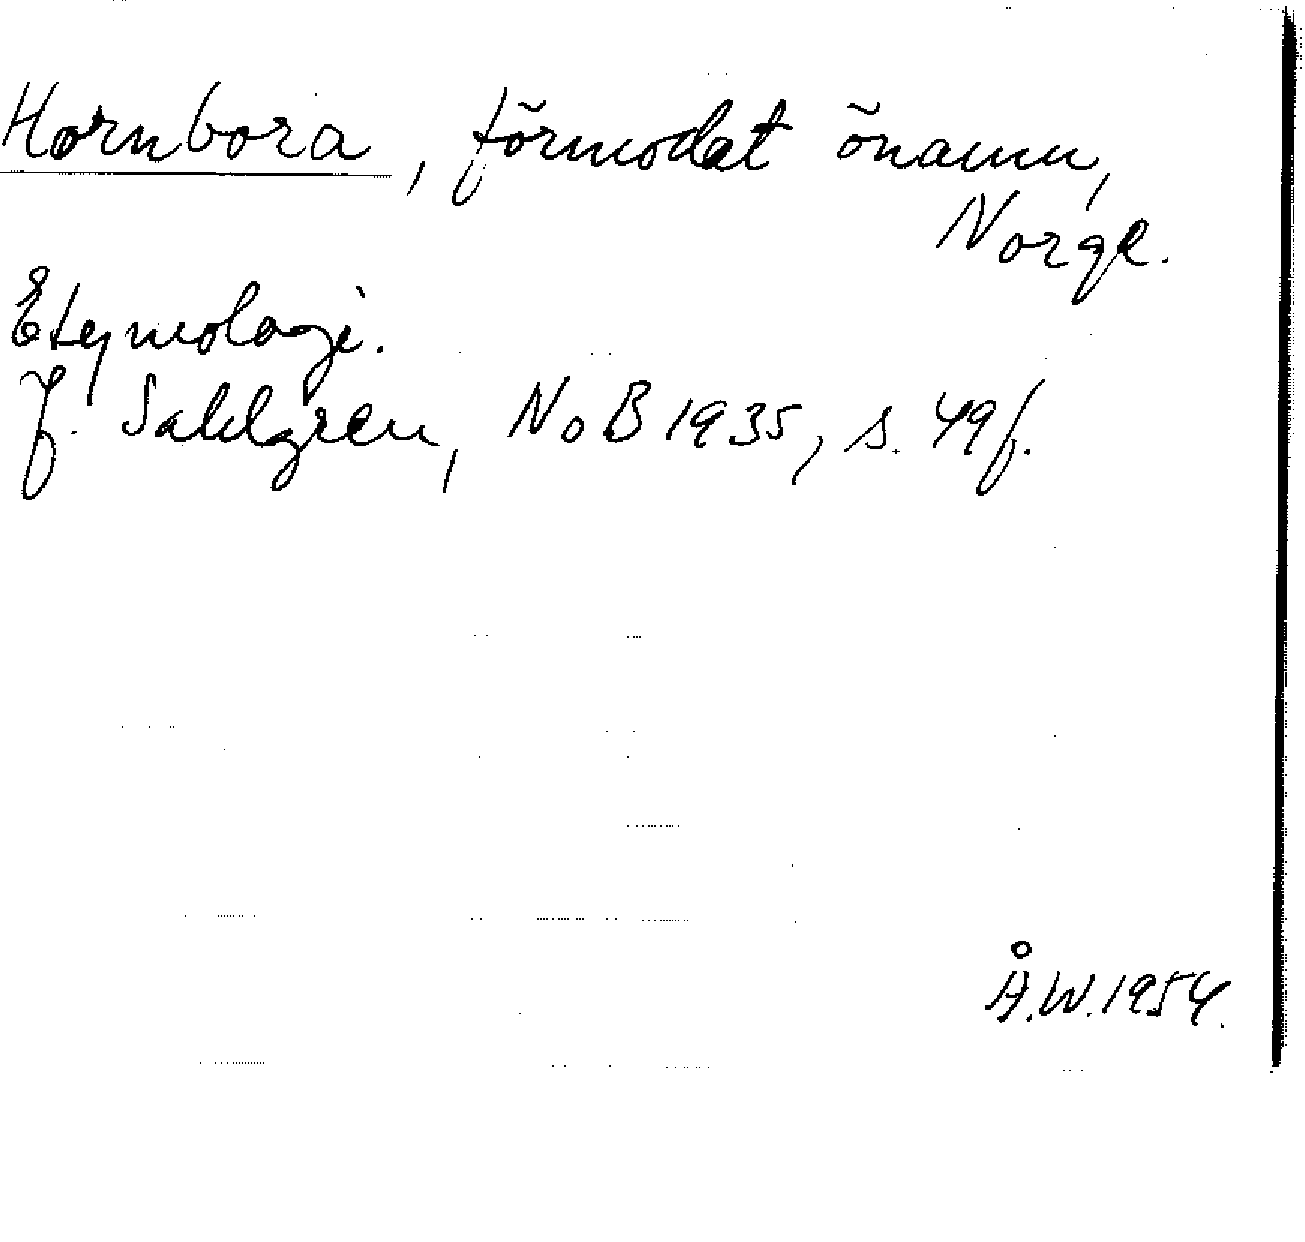 Hornbora, förmodat önamn,
Norge.
Etymologi.
J. Sahlgren, NoB 1935, s. 49 f.
Å.W. 1954.